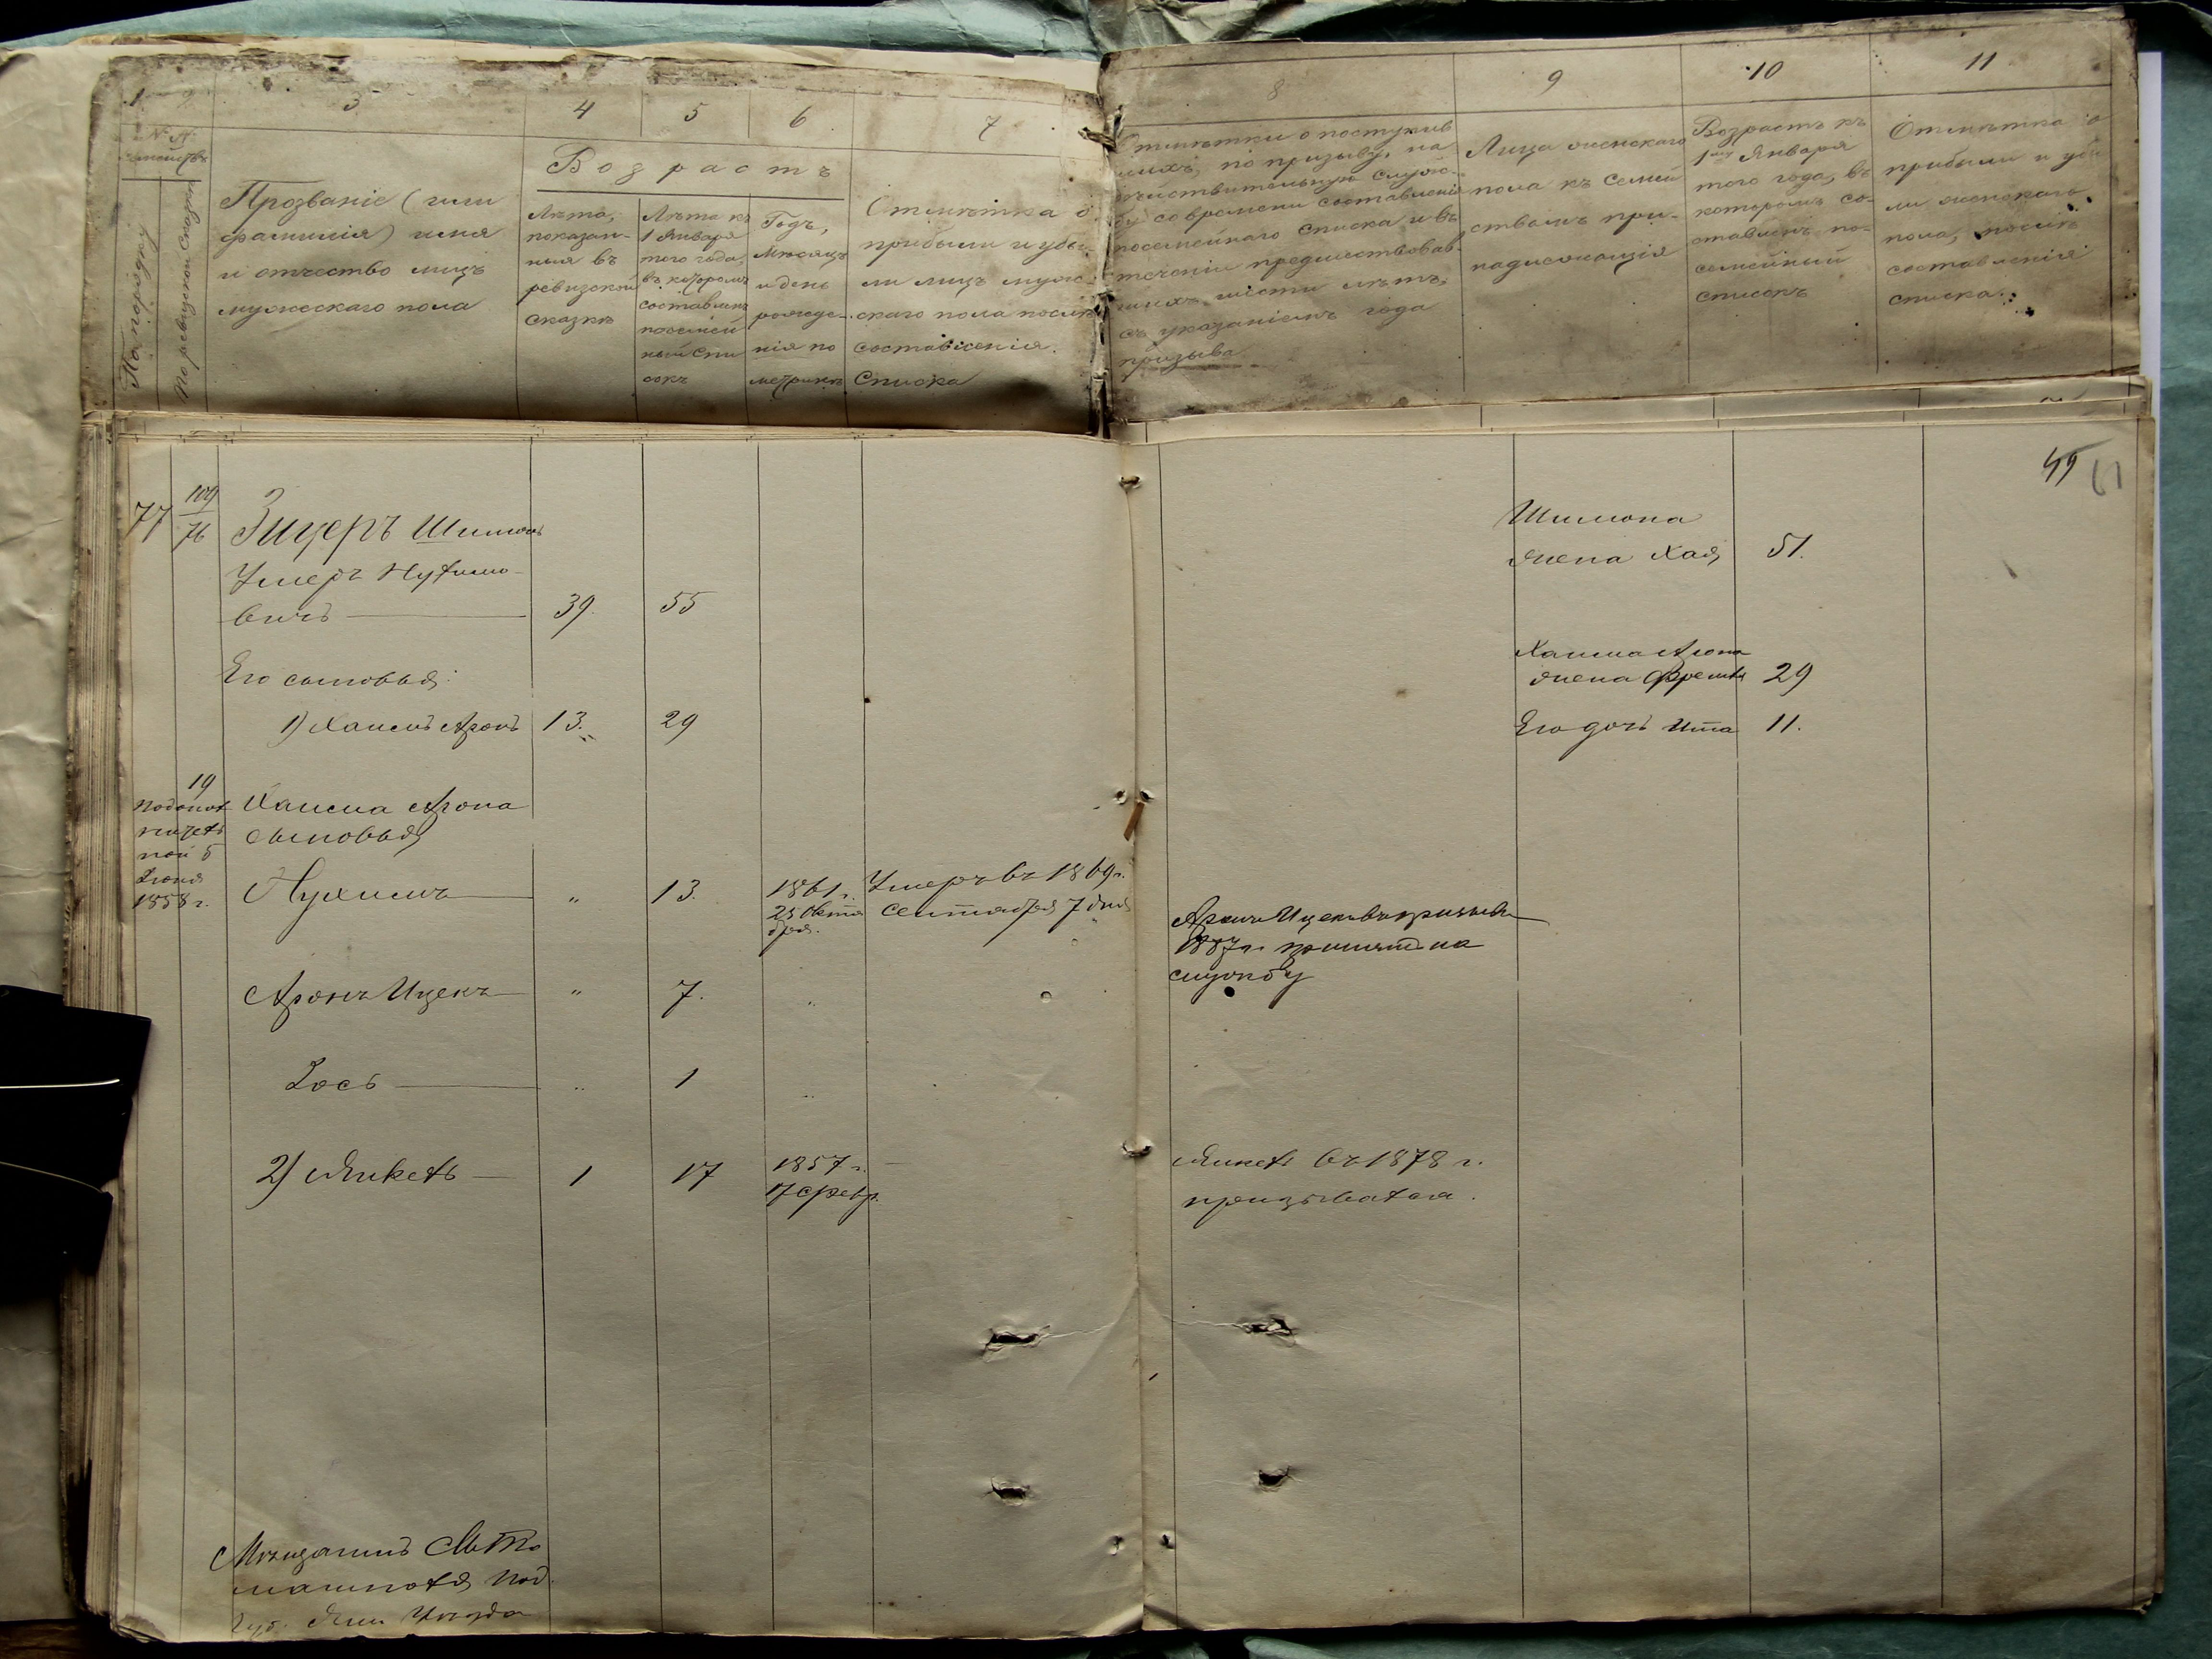 1
2
3
4
5
6
7
8
9
10
11
№ №
семействъ
По порядку
По ревизской сказкѣ
Прозваніе (или
фамилія) имя
и отчество лицъ
мужескаго пола
Возрастъ
Лѣта,
показан-
ныя въ
ревизской
сказкѣ
Лѣта къ
1 Января
того года,
въ которомъ
составленъ
посемей
ный спи
сокъ
Годъ,
мѣсяцъ
и день
рожде-
нія по
метрикѣ
Отмѣтка о
прибыли и убы-
ли лицъ муже-
скаго пола послѣ
составленія
списка
Отмѣтки о поступив
шихъ, по призыву, на
дѣйствительную служ-
бу со времени составленія
посемейнаго списка и въ
теченіи предшествовав-
шихъ шести лѣтъ,
съ указаніемъ года
призыва
Лица женскаго
пола къ семей
ствамъ при-
надлежащія
Возрастъ къ
1му Января
того года, въ
которомъ со-
ставленъ по-
семейный
списокъ
Отмѣтка о
прибыли и убы
ли женскаго
пола, послѣ
составленія
списка
49
61
77
109
76
Зицеръ Шимонъ
Умеръ Нухимо-
вичъ
39.
55
Шимона
жена Хая
51.
Его сыновья:
1) Хаимъ Аронъ
13.
29
Хаима Арона
жена Фрейда
29
Его дочь Ита
11.
19
1858 г.
Хаима Арона
сыновья
Нухимъ
"
13.
1861 г.
25 Октя
бря.
Умеръ въ 1869 г.
сентября 7 дня
Аронъ Ицекъ въ призывъ
1887 г. принятъ на
службу
Аронъ Ицекъ
"
7.
"
Іось
"
1
"
2) Янкель
1
17
1857 г.
17 февр.
Янкель въ 1878 г.
призывался.